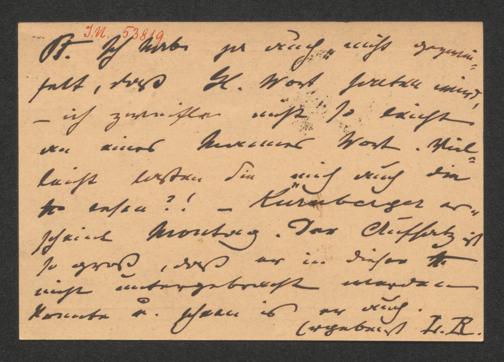 I.N. 53819
Pf. Ich habe ja auch nicht gezwei-
felt, daß H. Wort halten wird,
– ich zweifle nicht so leicht
an eines Mannes Wort. Viel-
leicht lassen Sie mich auch die
?! – Kürnberger er-
scheint Montag. Der Aufsatz ist
so groß, daß er in dieser
nicht untergebracht werden
konnte u. schon ist er auch.
Ergebenst L. R.